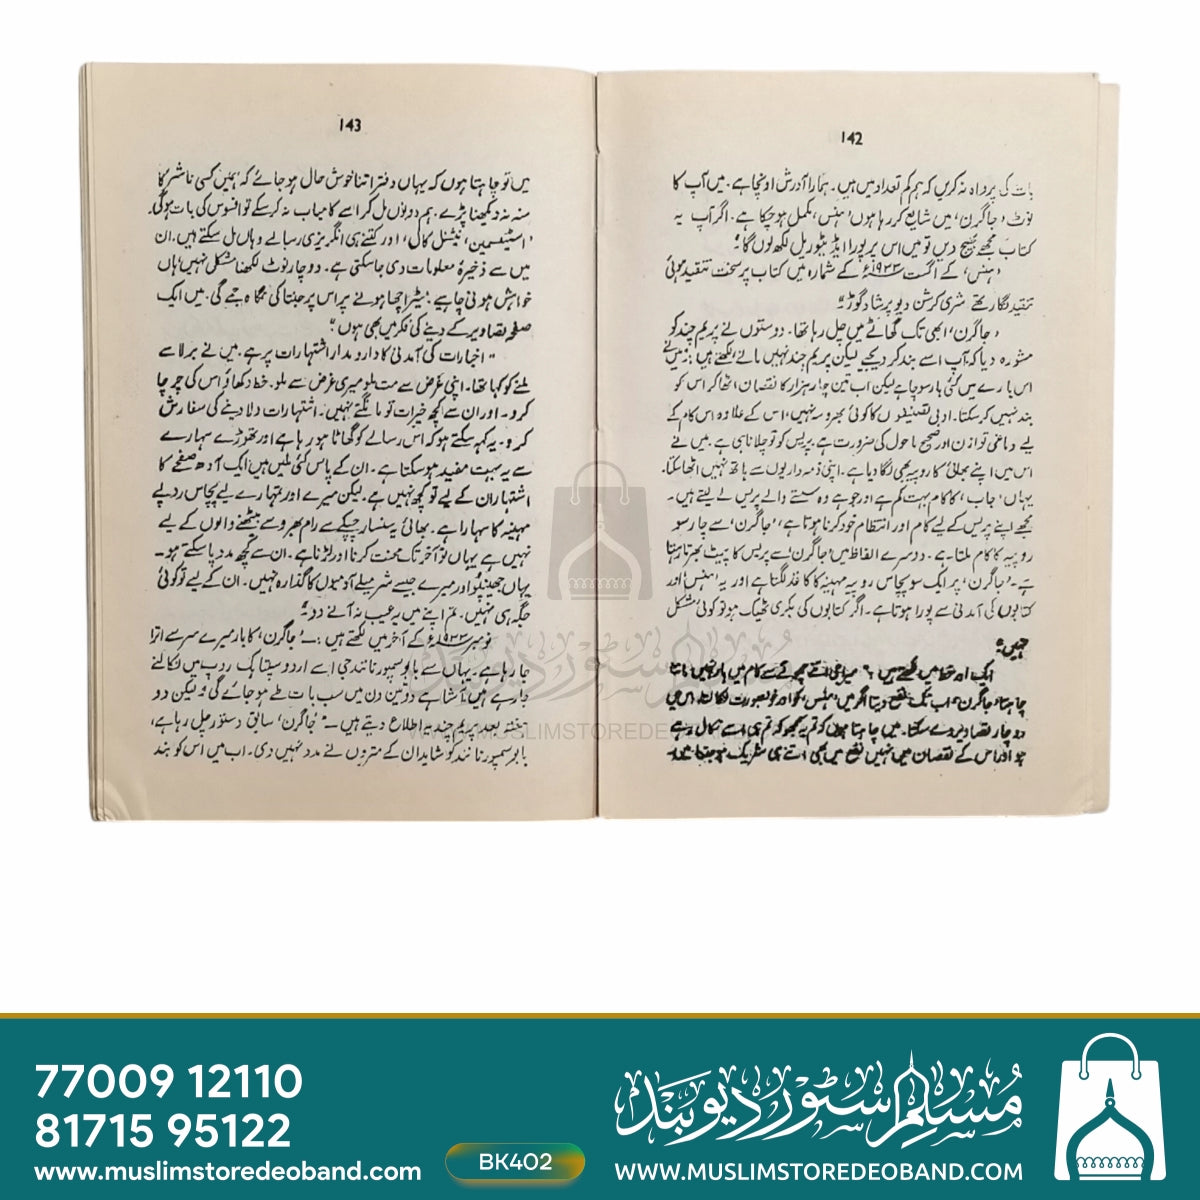 142
بات کی پرواہ نہ کریں کہ ہم کم تعداد میں ہیں۔ ہمارا آدرش اونچا ہے۔ میں آپ کا
نوٹ ’جاگرن‘ میں شایع کر رہا ہوں ’ہنس‘ مکمل ہو چکا ہے۔ اگر آپ یہ
کتاب مجھے بھیج دیں تو میں اس پر پورا ایڈیٹوریل لکھ لوں گا؛
’ہنس‘ کے اگست ۱۹۳۳ء کے شمارہ میں کتاب پر سخت تنقید ہوئی
تنقید نگار تھے شری کرشن دیو پرشاد گوڑ؛
’جاگرن‘ ابھی تک گھاٹے میں چل رہا تھا۔ دوستوں نے پریم چند کو
مشورہ دیا کہ آپ اسے بند کر دیجیے لیکن پریم چند نہیں مانے لکھتے ہیں: میں نے
اس بارے میں کئی بار سوچا ہے لیکن اب تین چار ہزار کا نقصان اٹھا کر اس کو
بند نہیں کر سکتا۔ ادبی تصنیفوں کا کوئی بھروسہ نہیں، اس کے علاوہ اس کام کے
لیے دماغی توازن اور صحیح ماحول کی ضرورت ہے پریس کو تو چلانا ہی ہے۔ میں نے
اس میں اپنے بھائی کا روپیہ بھی لگا دیا ہے۔ اپنی ذمہ داریوں سے ہاتھ نہیں اٹھا سکتا۔
یہاں ’جاب‘ کا کام بہت کم ہے اور جو ہے وہ سستے والے پریس لے لیتے ہیں۔
مجھے اپنے پریس کے لیے کام اور انتظام خود کرنا ہوتا ہے، ’جاگرن‘ سے چار سو
روپیہ کا کام ملتا ہے۔ دوسرے الفاظ میں ’جاگرن‘ سے پریس کا پیٹ بھرتا رہتا
ہے۔ ’جاگرن‘ پر ایک سو پچاس روپیہ مہینہ کا کاغذ لگتا ہے اور یہ ’ہنس‘ اور
کتابوں کی آمدنی سے پورا ہوتا ہے۔ اگر کتابوں کی بکری ٹھیک ہو تو کوئی مشکل
نہیں؛
ایک اور خط میں لکھتے ہیں
چاہتا، جاگرن، اب تک نفع دیتا اگر میں ’ہنس‘ کو اور خوبصورت نکالتا، اس میں
دو چار تصاویر دے سکتا۔ میں چاہتا ہوں کہ تم یہ سمجھو کہ تم ہی اسے نکال رہے
ہو اور اس کے نقصان میں نہیں نفع میں بھی اتنے ہی شریک ہو جتنا میں۔
143
میں تو چاہتا ہوں کہ یہاں دفتر اتنا خوش حال ہو جائے کہ ہمیں کسی ناشر کا
منہ نہ دیکھنا پڑے۔ ہم دونوں مل کر اسے کامیاب نہ کر سکے تو افسوس کی بات ہوگی۔
’اسٹیٹسمین‘، نیشنل کال، اور کتنے ہی انگریزی رسالے وہاں مل سکتے ہیں۔ ان
میں سے ذخیرۂ معلومات دی جا سکتی ہے۔ دو چار نوٹ لکھنا مشکل نہیں، ہاں
خواہش ہونی چاہیے؛ میٹر اچھا ہونے پر اس پر جنتا کی نگاہ جمے گی۔ میں ایک
صفحہ تصاویر کے دینے کی فکر میں بھی ہوں؛
"اخبارات کی آمدنی کا دارومدار اشتہارات پر ہے۔ میں نے برلا سے
ملنے کو کہا تھا۔ اپنی غرض سے مت ملو میری غرض سے ملو۔ خط دکھاؤ اس کی چرچا
کرو۔ اور ان سے کچھ خیرات تو مانگتے نہیں۔ اشتہارات دلا دینے کی سفارش
کرو۔ یہ کہہ سکتے ہو کہ اس رسالے کو گھاٹا ہو رہا ہے اور تھوڑے سہارے
سے یہ بہت مفید ہو سکتا ہے۔ ان کے پاس کئی ملیں ہیں ایک آدھ صفحے کا
اشتہار ان کے لیے تو کچھ نہیں ہے۔ لیکن میرے اور تمہارے لیے پچاس روپے
مہینہ کا سہارا ہے۔ بھائی یہ سنسار چپکے سے رام بھروسے بیٹھنے والوں کے لیے
نہیں ہے یہاں تو آخر تک محنت کرنا اور لڑنا ہے۔ ان سے کچھ مدد پا سکتے ہو۔
یہاں جھینپو اور میرے جیسے شرمیلے آدمیوں کا گذارہ نہیں۔ ان کے لیے تو کوئی
جگہ ہی نہیں۔ تم اپنے میں یہ عیب نہ آنے دو؛
نومبر ۱۹۳۳ء کے آخر میں لکھتے ہیں:۔ ’جاگرن‘ کا بار میرے سر سے اترا
جا رہا ہے۔ یہاں سے بابو سمپورنا نند جی اسے اردو سپتاہک روپ میں نکالنے
جا رہے ہیں آشا ہے دو تین دن میں سب بات طے ہو جائے گی، لیکن دو
ہفتہ بعد پریم چند یہ اطلاع دیتے ہیں۔ ’جاگرن‘ سابق دستور چل رہا ہے،
بابو سمپورنا نند کو شاید ان کے متروں نے مدد نہیں دی۔ اب میں اس کو بند
WWW.MUSLIMSTOREDEOBAND
77009 12110
81715 95122
www.muslimstoredeoband.com
BK402
مسلم سٹور دیوبند
WWW.MUSLIMSTOREDEOBAND.COM